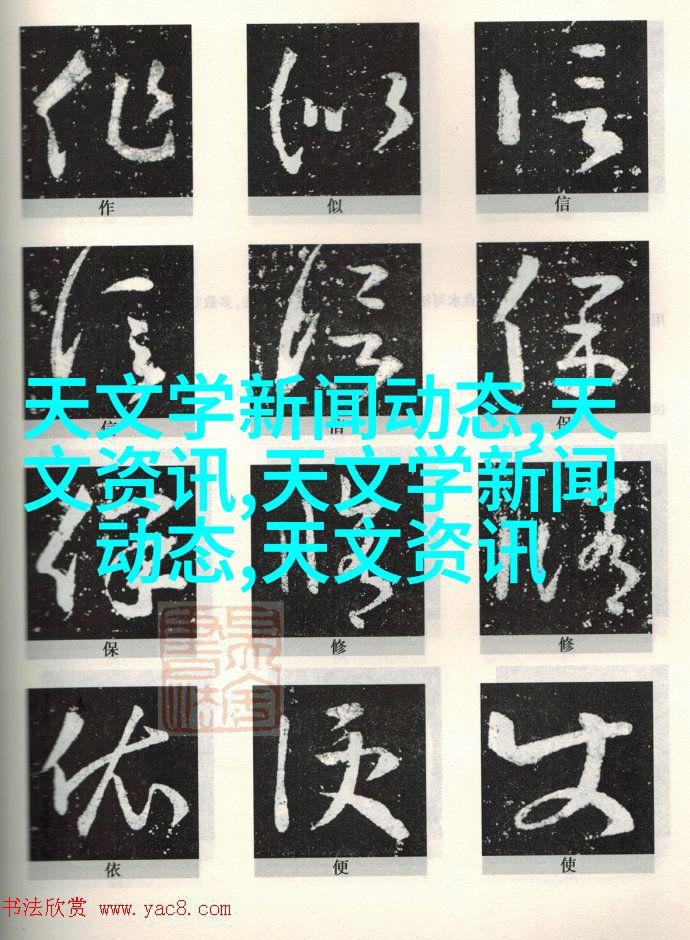 作 似 信
信 信 保
天文学新闻动态,天
文资讯,天文学新闻
动态,天文资讯
保 修 修
依 便 使
书法欣赏 www.yac8.com